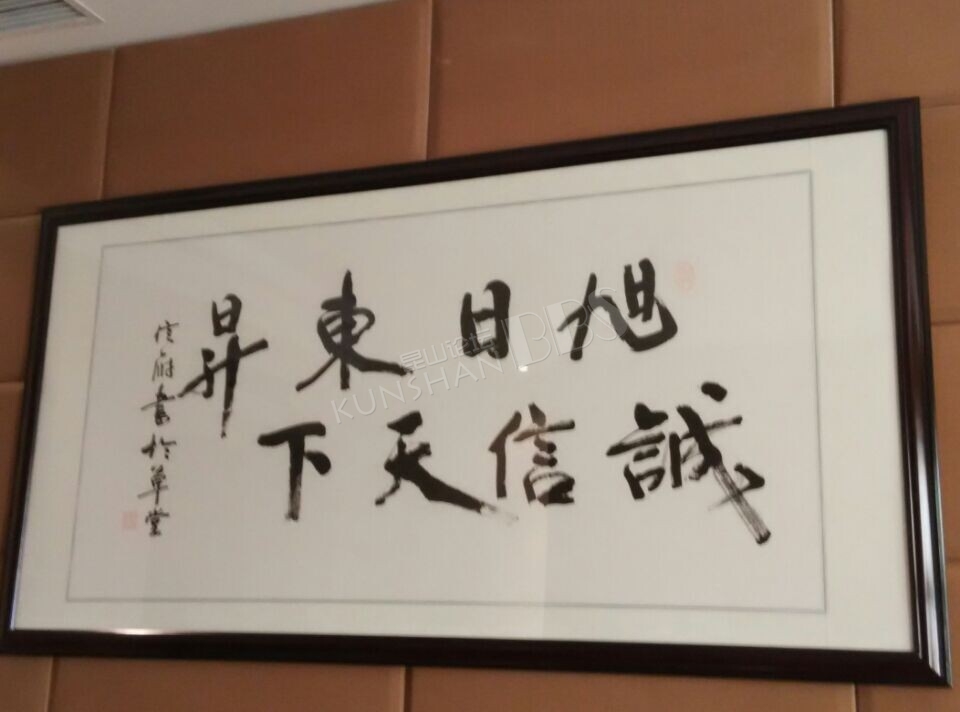 旭日東昇
誠信天下
信府書於草堂
昆山论坛 BBS
KUNSHAN